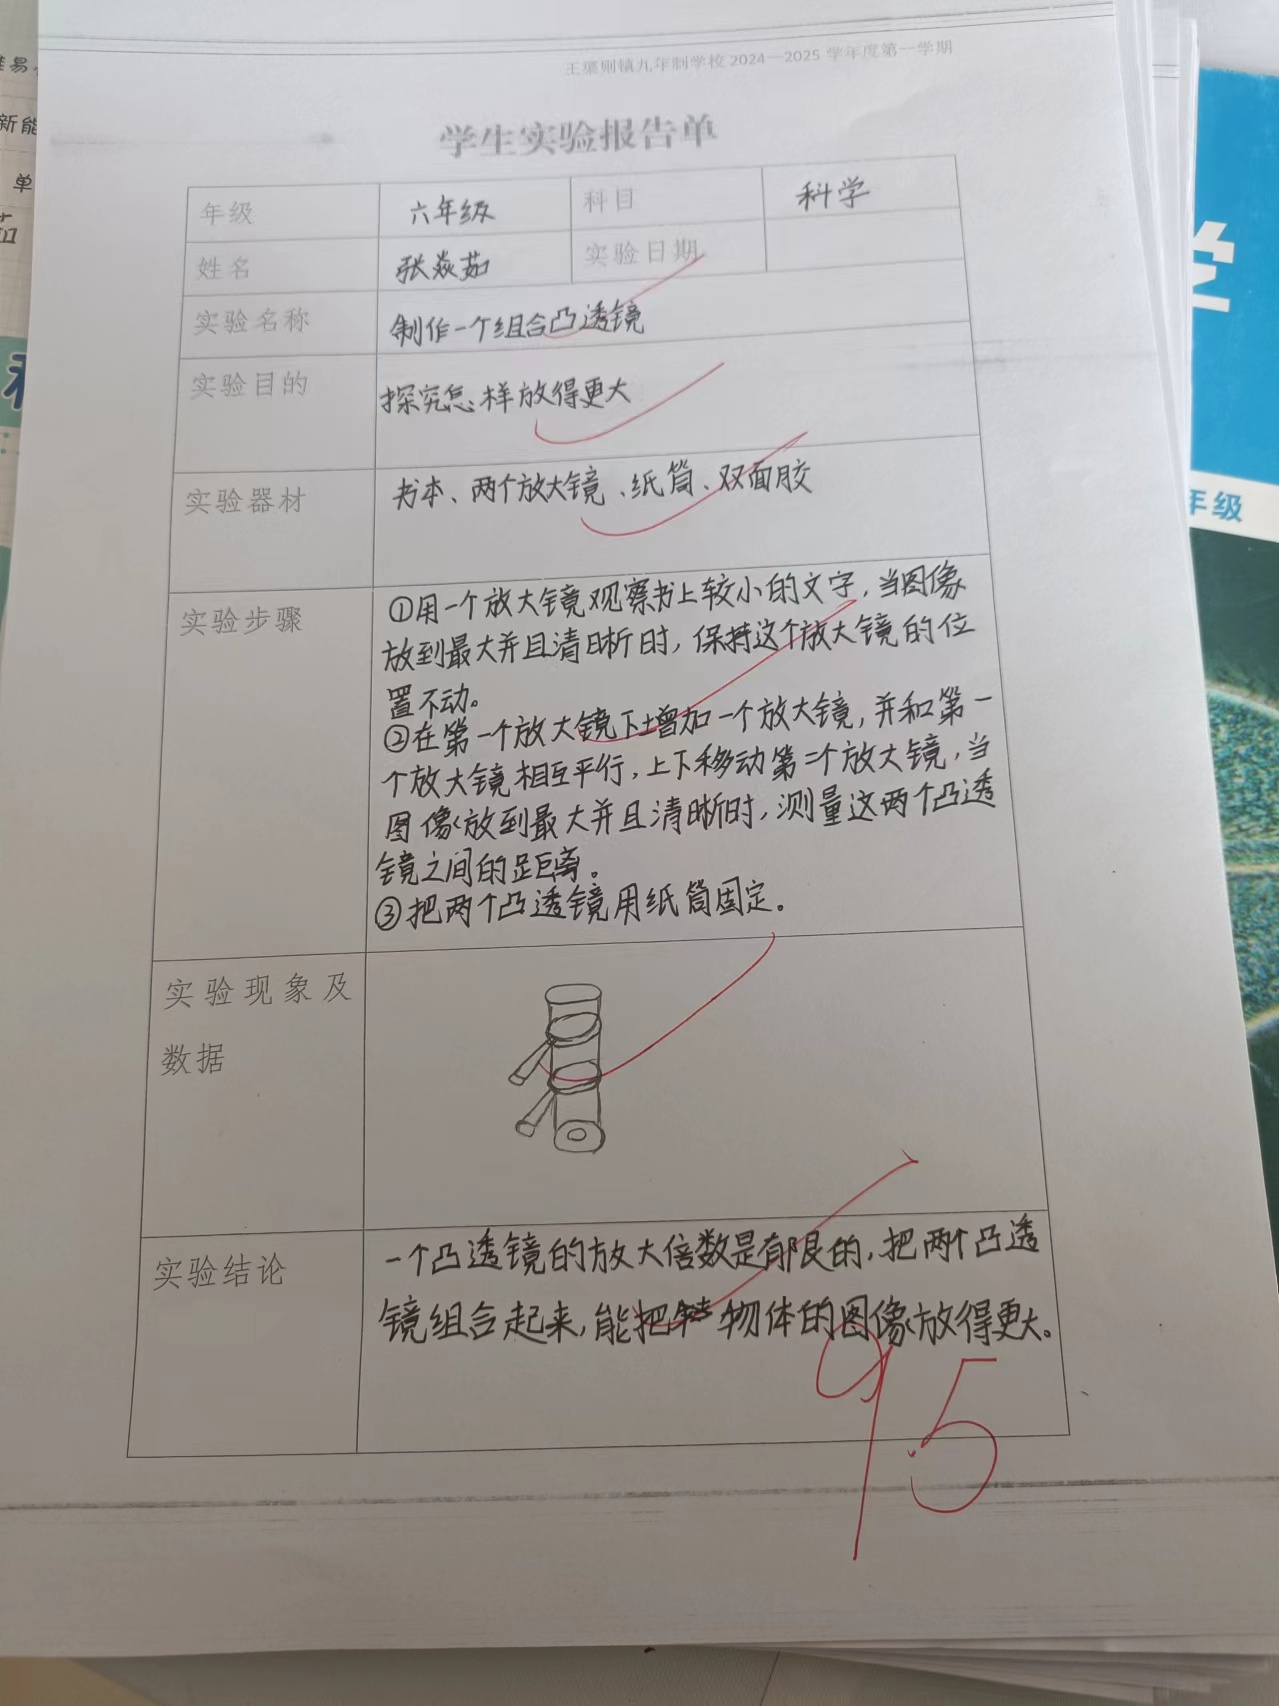 王渠则镇九年制学校 2024—2025 学年度第一学期
学生实验报告单
年级 六年级 科目 科学
姓名 张焱茹 实验日期
实验名称 制作一个组合凸透镜
实验目的 探究怎样放得更大
实验器材 书本、两个放大镜、纸筒、双面胶
实验步骤 ①用一个放大镜观察书上较小的文字,当图像
放到最大并且清晰时,保持这个放大镜的位
置不动。
②在第一个放大镜下增加一个放大镜,并和第一
个放大镜相互平行,上下移动第二个放大镜,当
图像放到最大并且清晰时,测量这两个凸透
镜之间的距离。
③把两个凸透镜用纸筒固定。
实验现象及
数据
实验结论 一个凸透镜的放大倍数是有限的,把两个凸透
镜组合起来,能把物体的图像放得更大。
9.5
新能
单
茹
学
年级